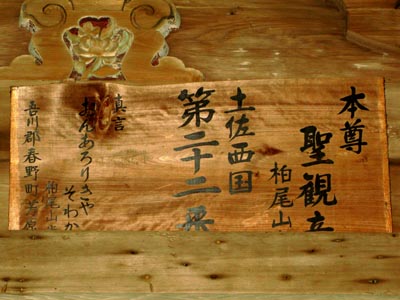 本尊
聖観音
柏尾山
土佐西国
第二十二番
真言
おんあろりきや
そわか
吾川郡春野町芳原
柏尾山